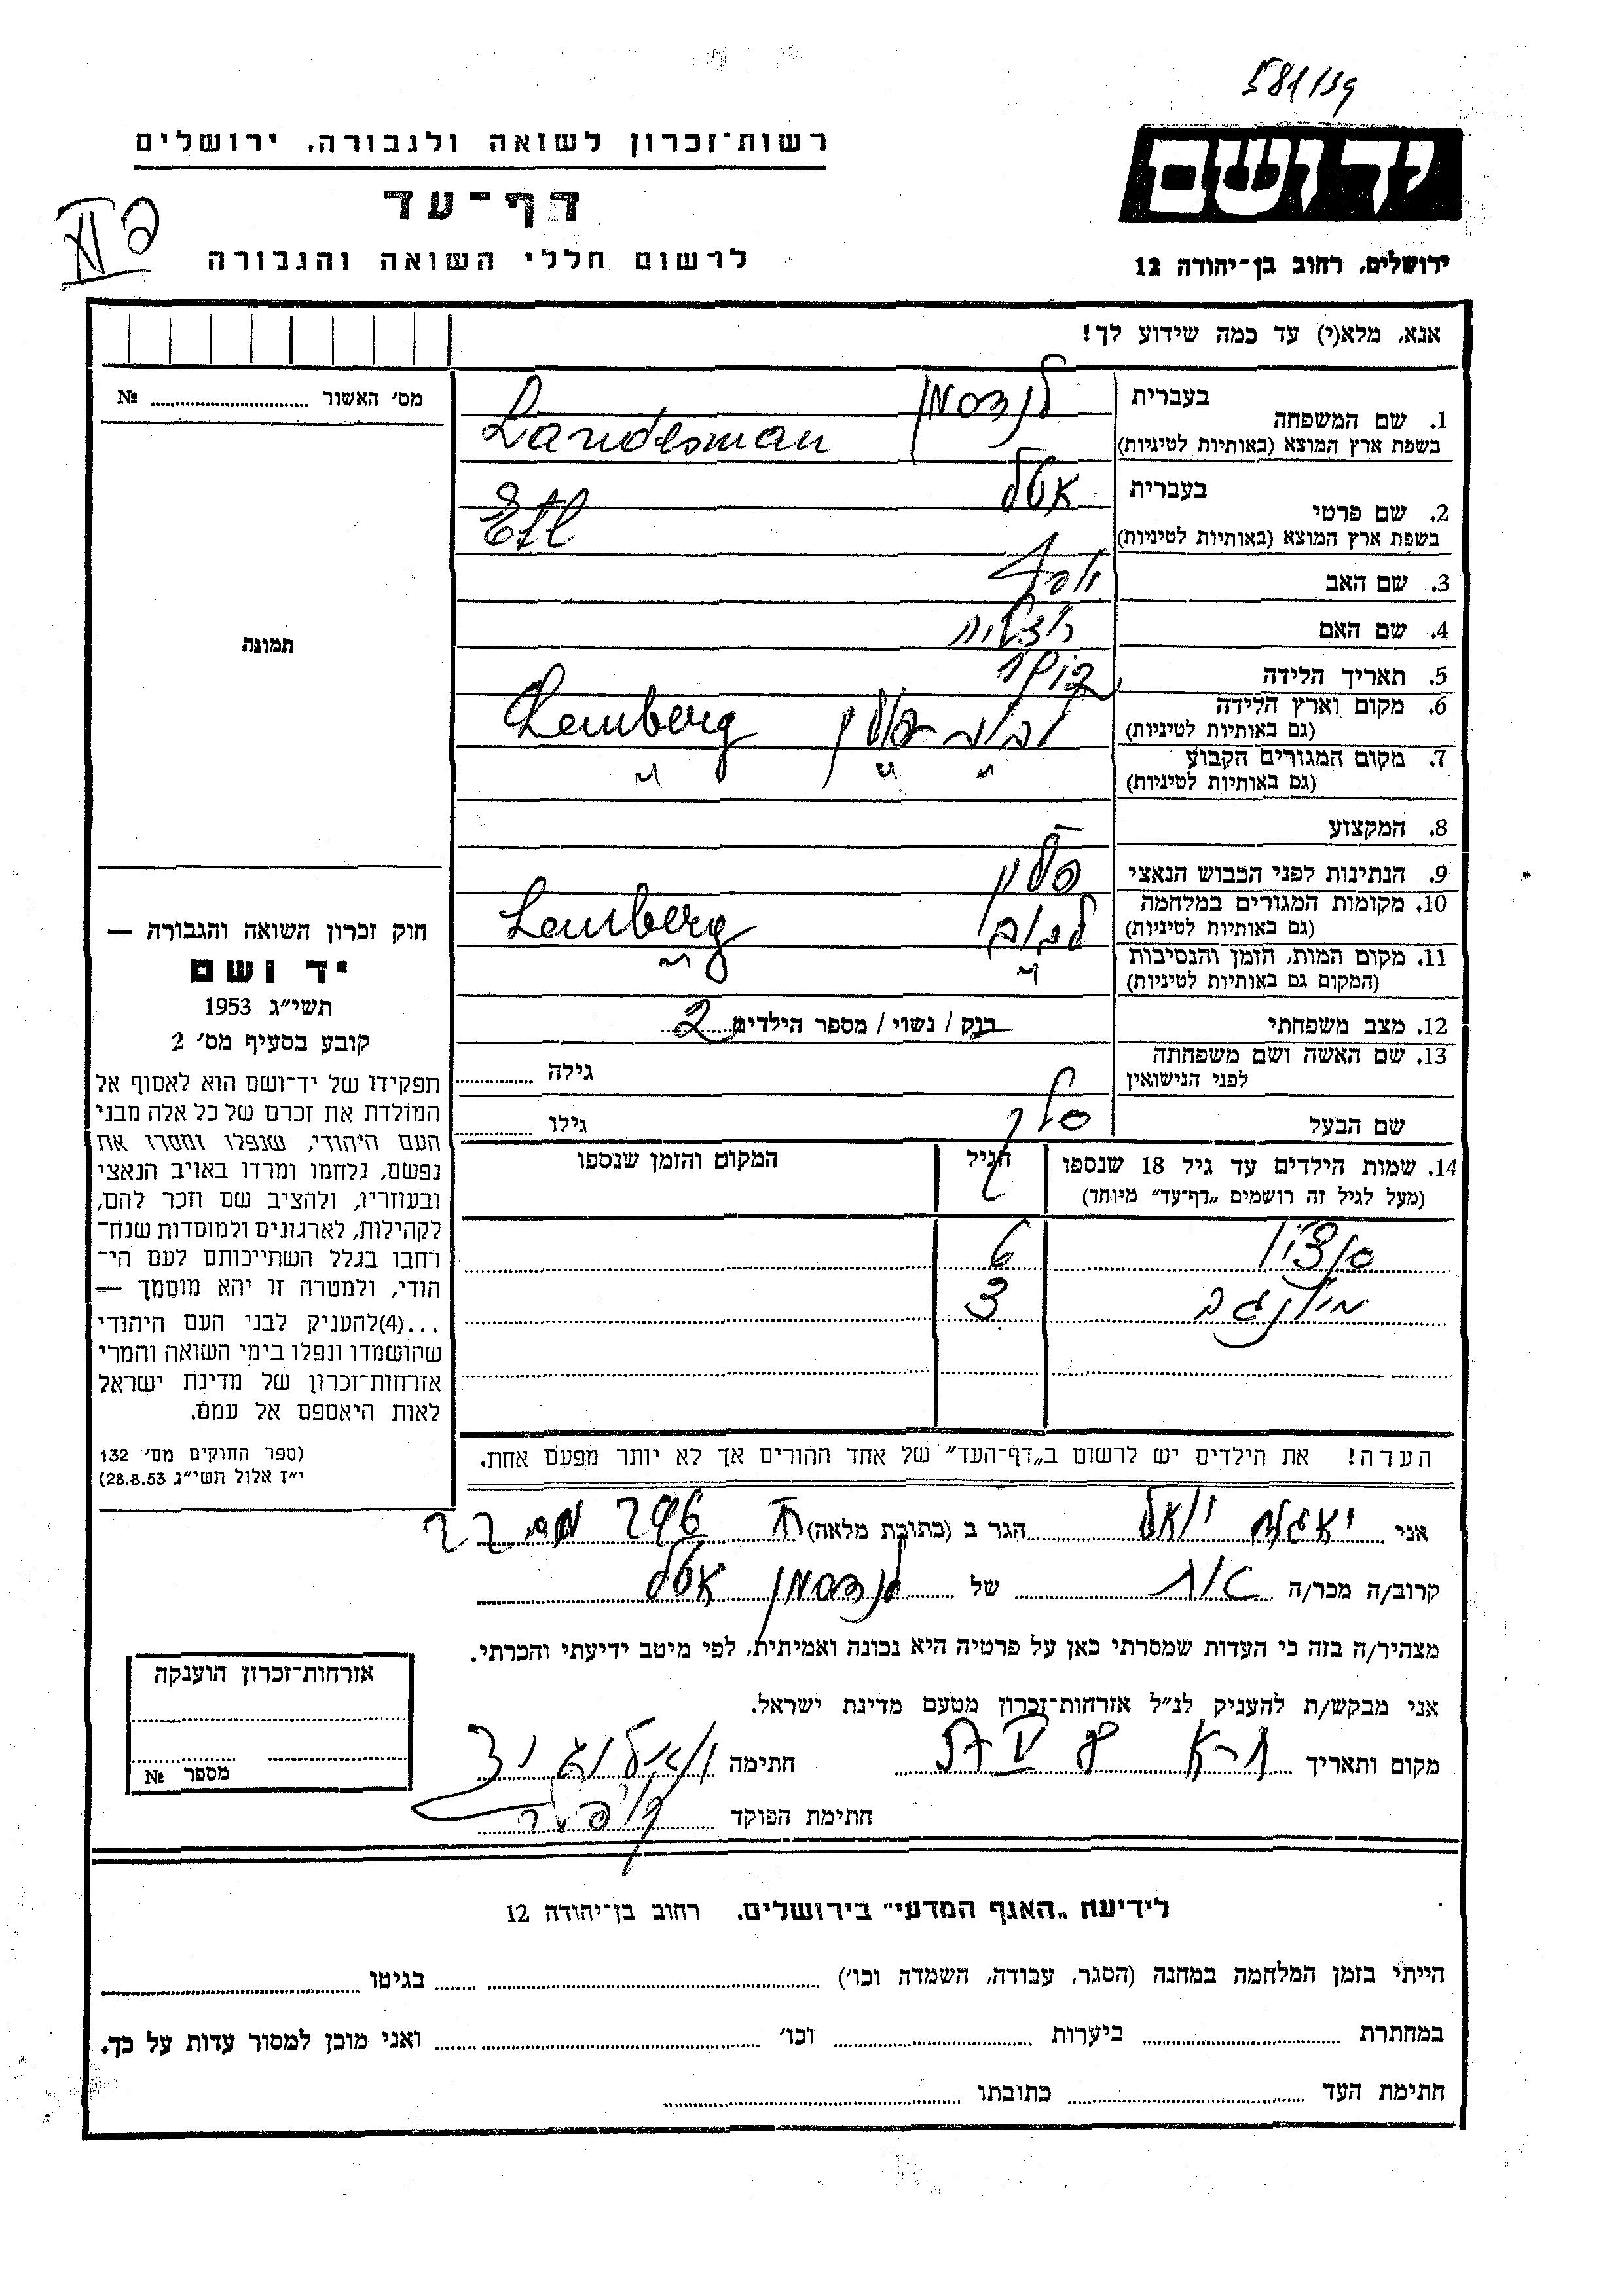 581/139
רשות־זכרון לשואה ולגבורה, ירושלים
יד ושם
דף-עד
לרשום חללי השואה והגבורה
ירושלים, רחוב בן־יהודה 12
אנא, מלא(י) עד כמה שידוע לך!
מס׳ האשור № 
1. שם המשפחה בעברית לנדסמן
בשפת ארץ המוצא (באותיות לטיניות) Landesman
2. שם פרטי בעברית אטל
בשפת ארץ המוצא (באותיות לטיניות) Etl
3. שם האב יוסף
4. שם האם
5. תאריך הלידה
6. מקום וארץ הלידה (גם באותיות לטיניות) לבוב פולין Lemberg
7. מקום המגורים הקבוע (גם באותיות לטיניות) " " "
8. המקצוע –
9. הנתינות לפני הכבוש הנאצי פולין
10. מקומות המגורים במלחמה (גם באותיות לטיניות) לבוב Lemberg
11. מקום המות, הזמן והנסיבות (המקום גם באותיות לטיניות) " "
12. מצב משפחתי רווק / נשוי / מספר הילדים 2
13. שם האשה ושם משפחתה לפני הנישואין גילה
שם הבעל גילו
14. שמות הילדים עד גיל 18 שנספו
(מעל לגיל זה רושמים „דף־עד” מיוחד)
הגיל
המקום והזמן שנספו
6
3
הערה! את הילדים יש לרשום ב„דף־העד” של אחד ההורים אך לא יותר מפעם אחת.
תמונה
חוק זכרון השואה והגבורה —
יד ושם
תשי״ג 1953
קובע בסעיף מס׳ 2
תפקידו של יד־ושם הוא לאסוף אל
המולדת את זכרם של כל אלה מבני
העם היהודי, שנפלו ומסרו את
נפשם, נלחמו ומרדו באויב הנאצי
ובעוזריו, ולהציב שם וזכר להם,
לקהילות, לארגונים ולמוסדות שנח־
רבו בגלל השתייכותם לעם הי־
הודי, ולמטרה זו יהא מוסמך —
...(4) להעניק לבני העם היהודי
שהושמדו ונפלו בימי השואה והמרי
אזרחות־זכרון של מדינת ישראל
לאות היאספם אל עמם.
(ספר החוקים מס׳ 132
י״ז אלול תשי״ג 28.8.53)
אני יואל הגר ב (כתובת מלאה)
קרוב/ה מכר/ה של לנדסמן אטל
מצהיר/ה בזה כי העדות שמסרתי כאן על פרטיה היא נכונה ואמיתית, לפי מיטב ידיעתי והכרתי.
אני מבקש/ת להעניק לנ״ל אזרחות־זכרון מטעם מדינת ישראל.
מקום ותאריך ת-א חתימה
חתימת הפוקד
אזרחות־זכרון הוענקה
מספר №
לידיעת „האגף המדעי” בירושלים, רחוב בן־יהודה 12
הייתי בזמן המלחמה במחנה (הסגר, עבודה, השמדה וכו׳) בגיטו
במחתרת ביערות וכו׳ ואני מוכן למסור עדות על כך.
חתימת העד כתובתו